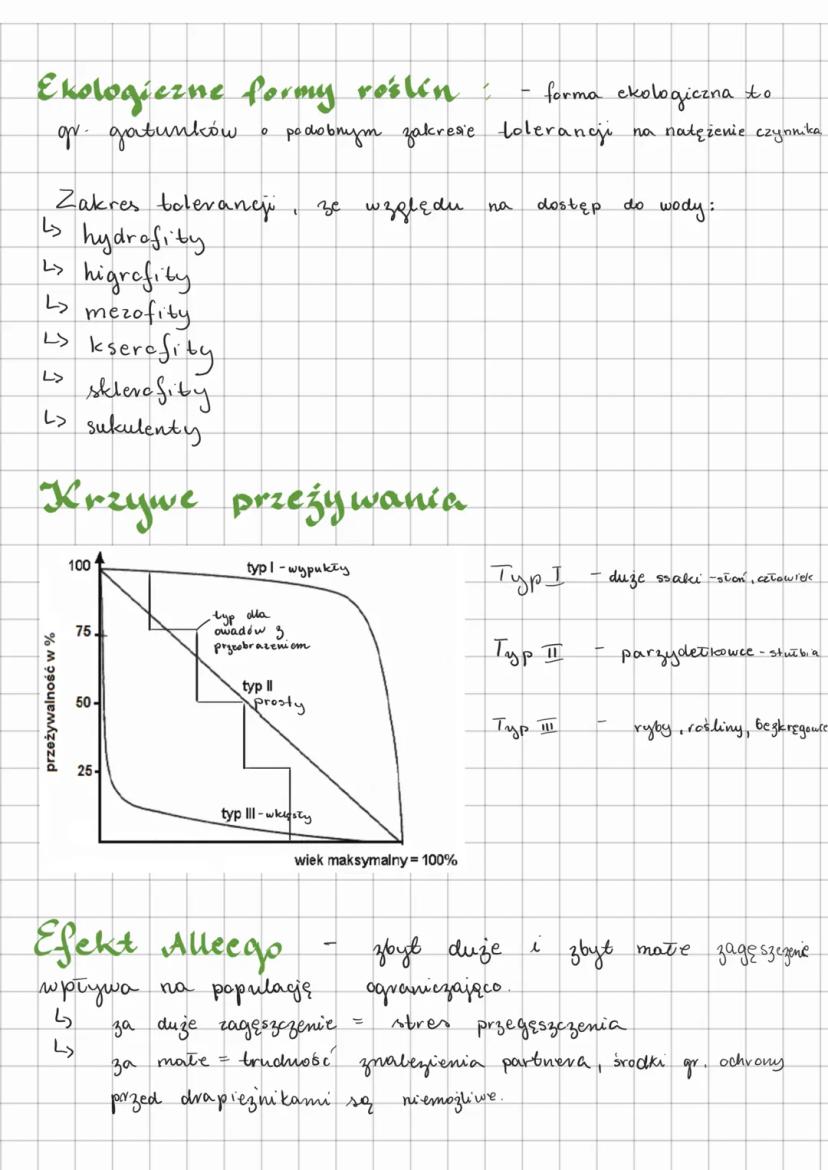 Ekologiczne formy roślin : - forma ekologiczna to
gr. gatunków o podobnym zakresie tolerancji na natężenie czynnika
Zakres tolerancji, ze względu na dostęp do wody:
↳ hydrofity
↳ higrofity
↳ mezofity
↳ kserofity
↳ sklerofity
↳ sukulenty
Krzywe przeżywania
przeżywalność w %
100
75
50
25
typ I - wypukły
typ dla
owadów z
przeobrażeniem
typ II
prosty
typ III - wklęsły
wiek maksymalny = 100%
Typ I - duże ssaki - słoń, człowiek
Typ II - parzydełkowce - stułbia
Typ III - ryby, rośliny, bezkręgowce
Efekt Alleego - zbyt duże i zbyt małe zagęszczenie
wpływa na populację ograniczająco.
↳ za duże zagęszczenie = stres przegęszczenia
↳ za małe = trudność znalezienia partnera, środki gr. ochrony
przed drapieżnikami są niemożliwe.